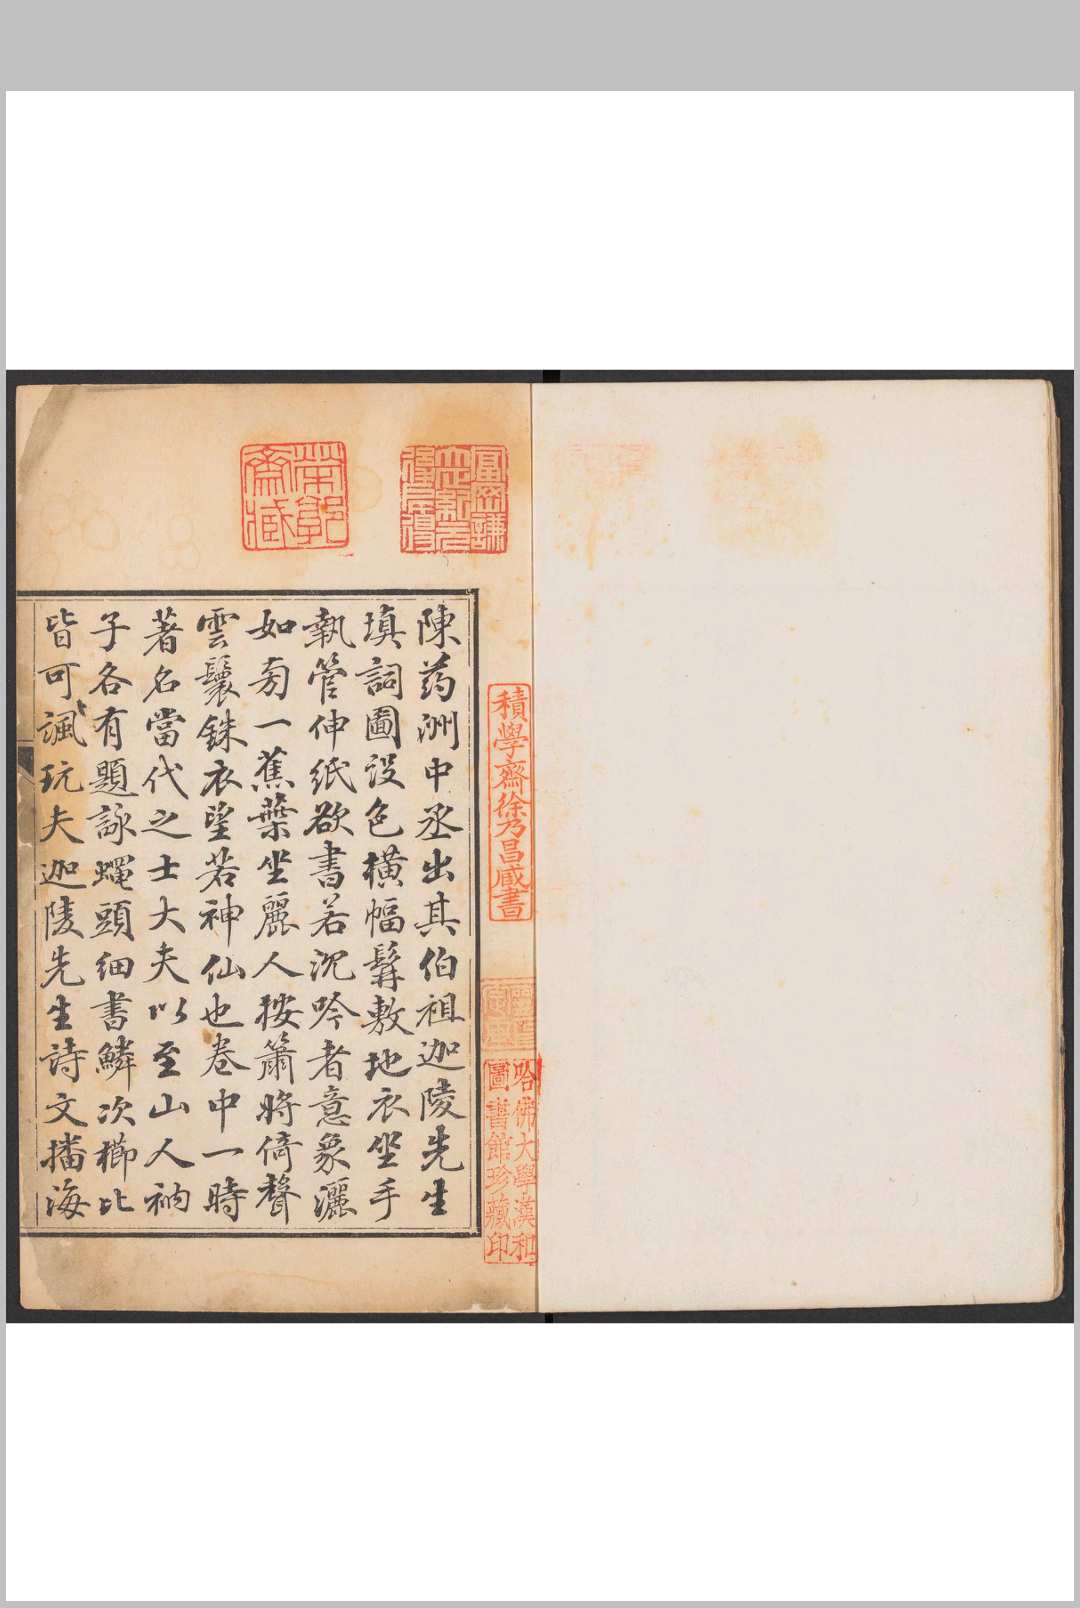 積學齋徐乃昌藏書
哈佛大學漢和
圖書館珍藏印
陳药洲中丞出其伯祖迦陵先生
填詞圖設色橫幅髯敷地衣坐手
執管伸紙欲書若沉吟者意象灑
如旁一蕉葉坐麗人按簫將倚聲
雲鬟銖衣望若神仙也卷中一時
著名當代之士大夫以至山人衲
子各有題詠蠅頭細書鱗次櫛比
皆可諷玩夫迦陵先生詩文播海